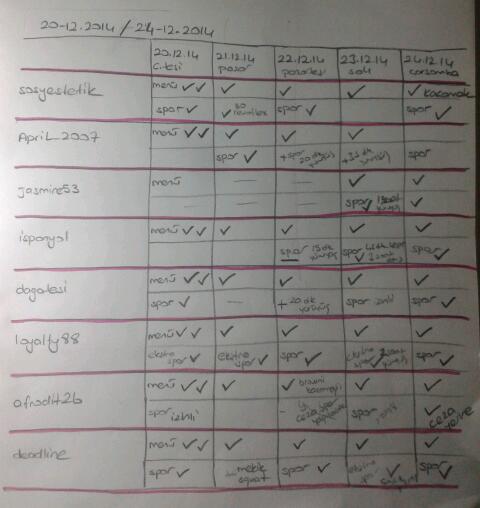 20-12.2014 / 24-12.2014
20.12.14 21.12.14 22.12.14 23.12.14 24.12.14
C.tesi pazar pazartesi salı çarşamba
sosyestetik menü ✓✓ ✓ ✓ ✓ ✓ kaçamak
spor ✓ ✓ 50 spor ✓ spor ✓
April 2007 menü ✓✓ ✓ ✓ ✓
spor ✓ + spor 20 dk + 35 dk spor
jasmine53 menü — — ✓ ✓
— — spor ✓ ✓
ispanyol menü ✓✓ ✓ ✓ ✓ ✓
spor 15 dk spor ✓ spor ✓
dogatesi menü ✓✓ ✓ ✓ ✓ ✓
spor ✓ — + 20 dk spor izinli spor ✓
loyalty88 menü ✓✓ ✓ ✓ ✓ ✓
ekstra spor ✓ ekstra spor ✓ spor ✓ ekstra spor ✓ spor ✓
afrodit26 menü ✓✓ ✓ ✓ browni kaçamağı ✓ ✓
spor izinli ceza spor spor izinli ✓ ceza
deadline menü ✓✓ ✓ ✓ ✓ ✓
spor ✓ mekik squat spor ✓ spor ✓ spor ✓